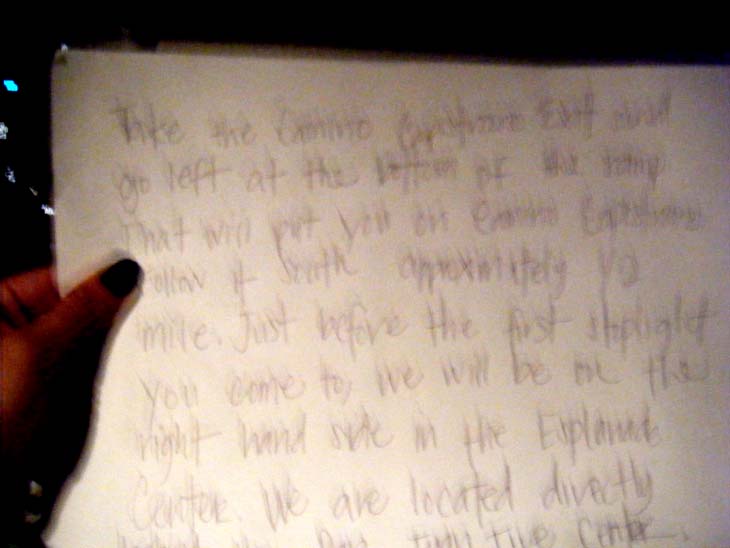 Take the Camino Capistrano Exit and
go left at the bottom of the ramp
That will put you on Camino Capistrano
Follow it south approximately 1/2
mile. Just before the first stoplight
you come to, we will be on the
right hand side in the Esplanade
Center. We are located directly
Center.